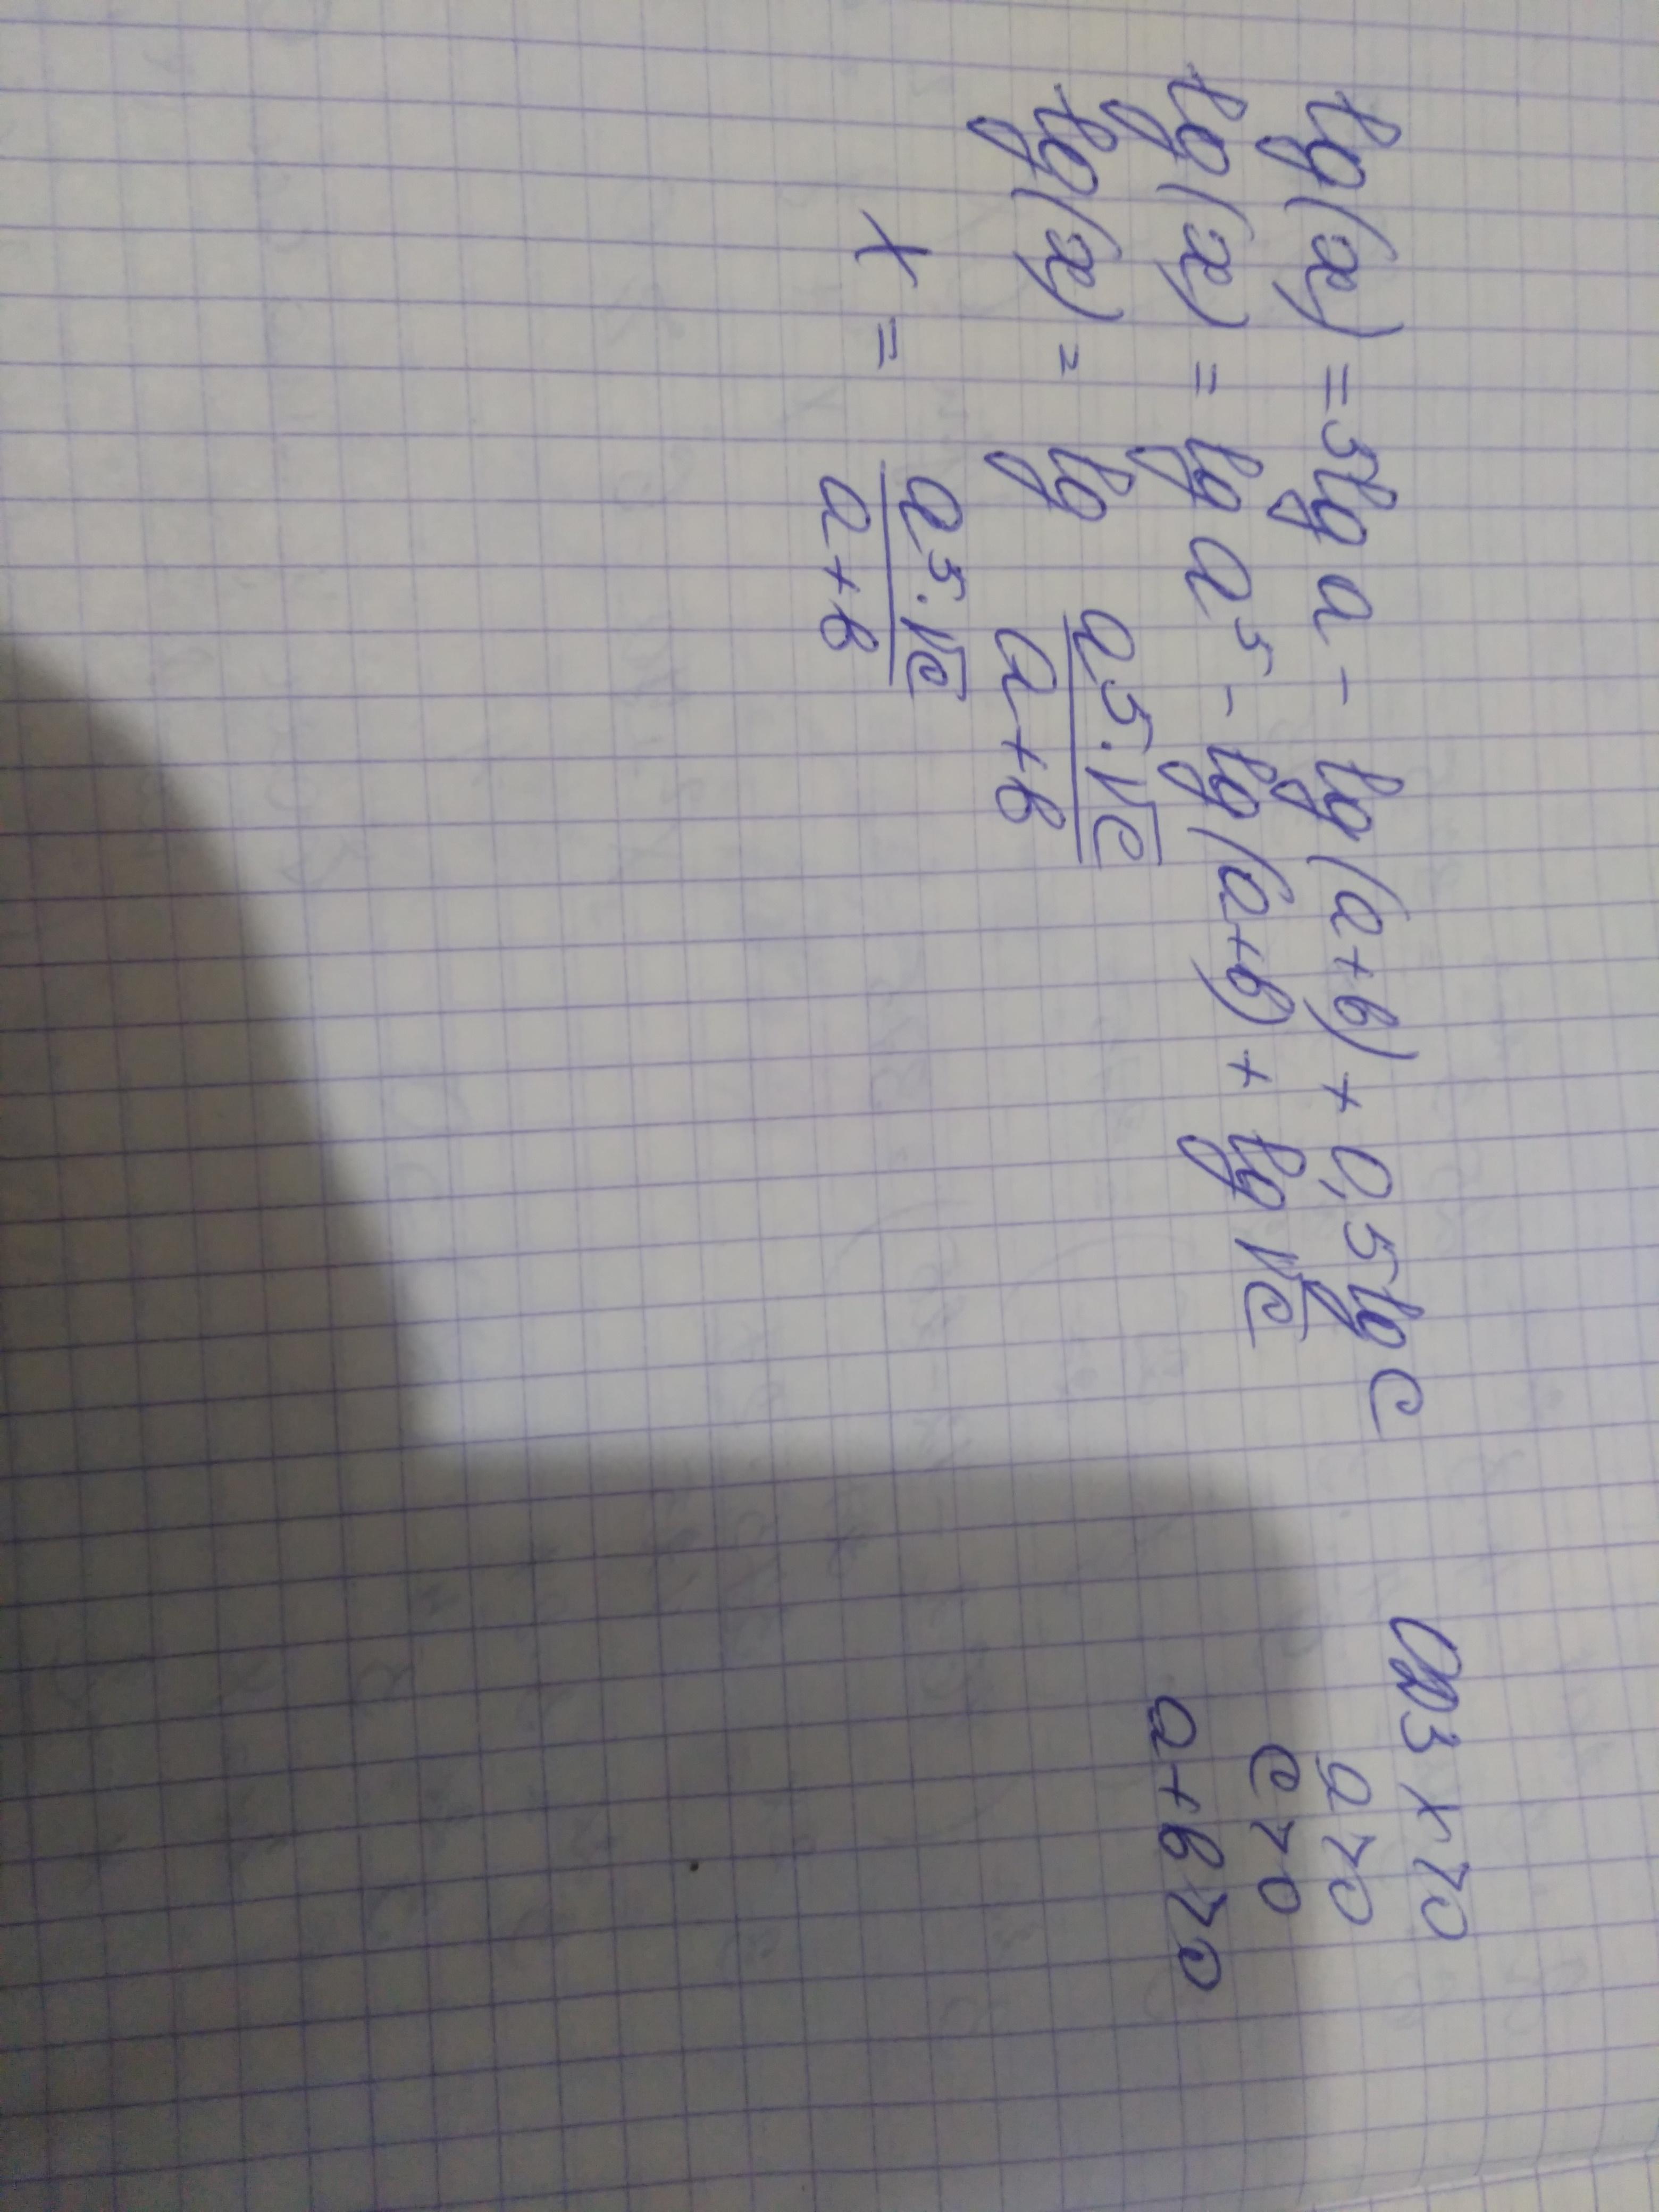 lg(x) = 5lg a - lg(a+в) + 0,5lg c
lg(x) = lg a⁵ - lg(a+в) + lg √c
lg(x) = lg a⁵·√c / a+в
x = a⁵·√c / a+в
ОДЗ x>0
a>0
c>0
a+в>0